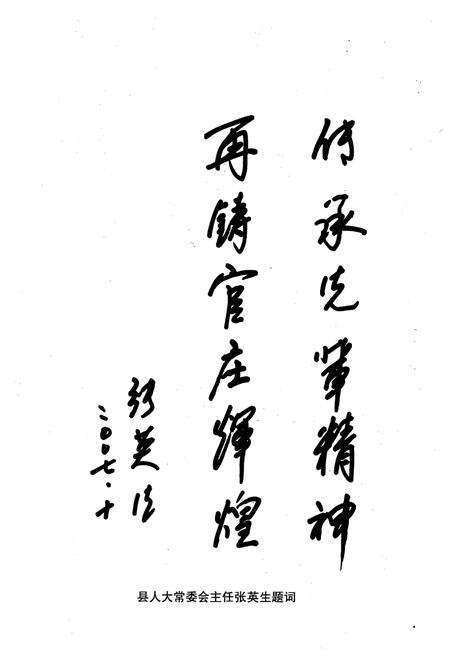 传承先辈精神
再铸官庄辉煌
张英生
二〇〇七.十
县人大常委会主任张英生题词